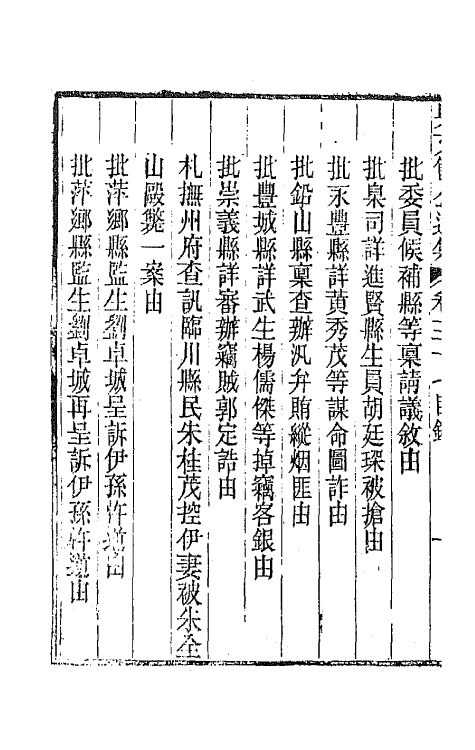 批委員候補縣等稟請議敘由
批臬司詳進賢縣生員胡廷琛被搶由
批永豐縣詳黃秀茂等謀命圖詐由
批鉛山縣稟查辦汛弁賄縱烟匪由
批豐城縣詳武生楊儒傑等掉竊客銀由
批崇義縣詳審辦竊賊郭定誥由
札撫州府查訊臨川縣民朱桂茂控伊妻被朱全
山毆斃一案由
批萍鄉縣監生劉卓城呈訴伊孫忤逆由
批萍鄉縣監生劉卓城再呈訴伊孫忤逆由